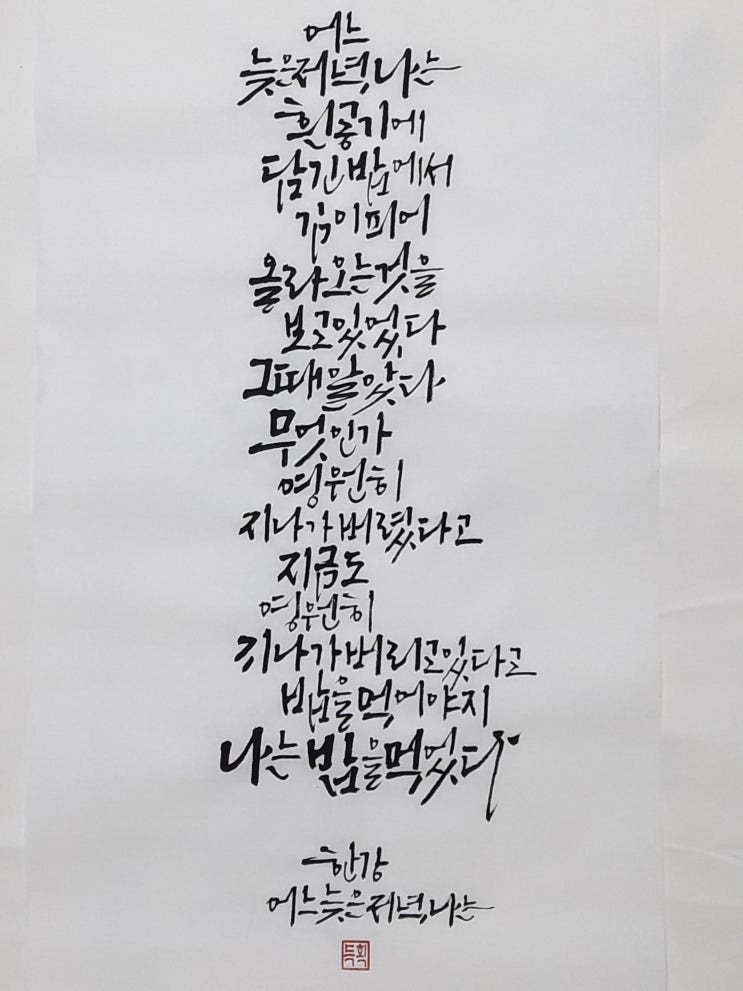 어느
늦은저녁,나는
흰공기에
담긴밥에서
김이피어
올라오는것을
보고있었다
그때알았다
무엇인가
영원히
지나가버렸다고
지금도
영원히
지나가버리고있다고
밥을먹어야지
나는밥을먹었다
한강
어느늦은저녁,나는